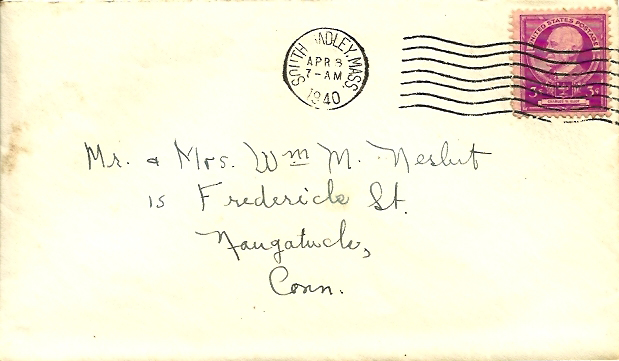 SOUTH HADLEY, MASS.
APR 3
7-AM
1940
UNITED STATES POSTAGE
3¢ 3¢
CHARLES W. ELIOT
Mr. & Mrs. Wm M. Nesbit
15 Frederick St.
Naugatuck,
Conn.